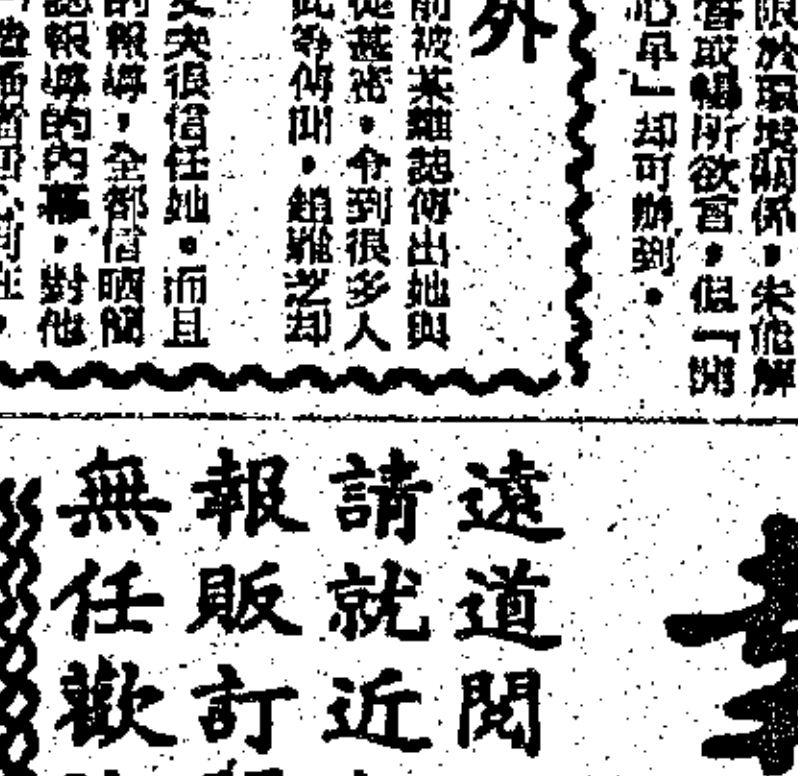 限於環境關係，未能解
或暢所欲言，但「開
心早」却可辦到。
外
前被某雜誌傳出她與
從甚密，令到很多人
此等傳聞，趙雅芝却
丈夫很信任她，而且
的報導，全部信晒簡
誌報導的內幕，對他
遠道閱
請就近
報販訂
無任歡